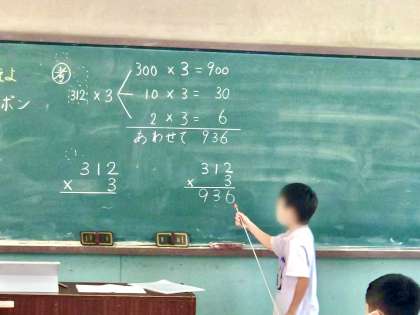 考 300 × 3 = 900
312 × 3 10 × 3 = 30
2 × 3 = 6
あわせて 936
ボン
312
× 3
312
× 3
936